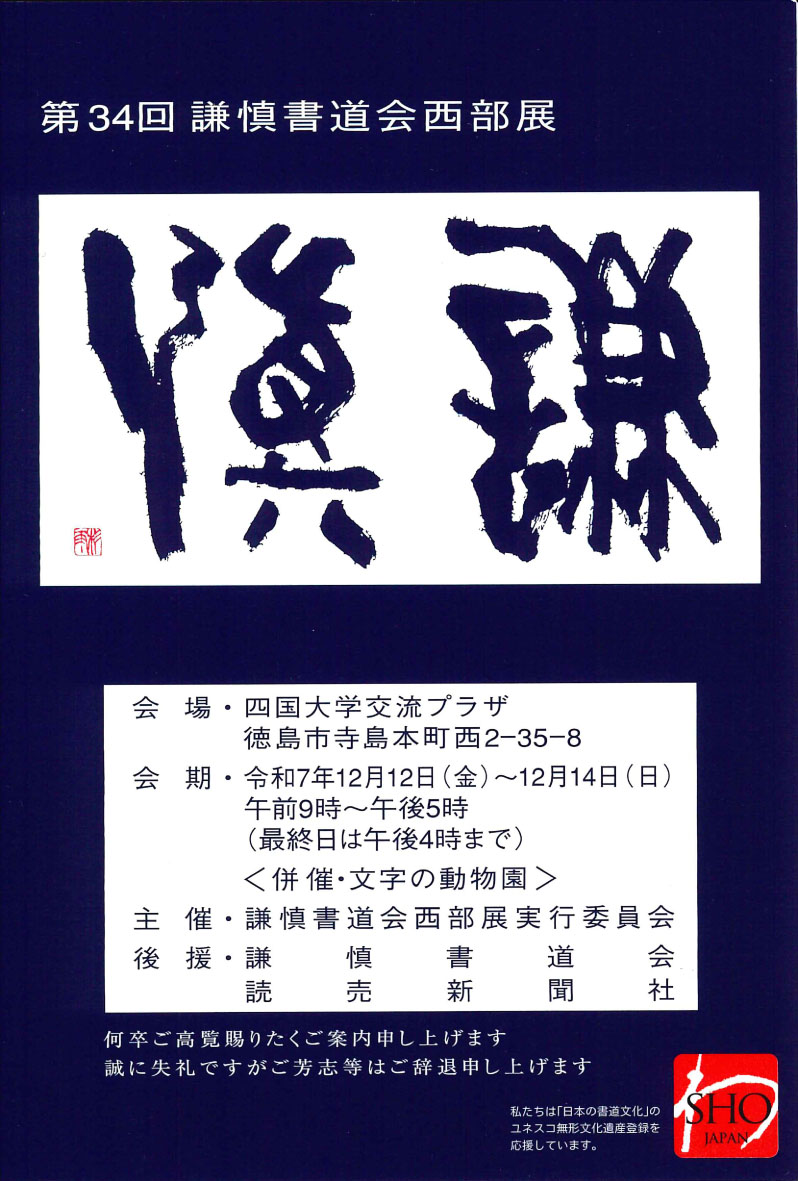 第34回 謙慎書道会西部展
謙慎
会場・四国大学交流プラザ
徳島市寺島本町西2-35-8
会期・令和7年12月12日（金）～12月14日（日）
午前9時～午後5時
（最終日は午後4時まで）
＜併催・文字の動物園＞
主催・謙慎書道会西部展実行委員会
後援・謙慎書道会
読売新聞社
何卒ご高覧賜りたくご案内申し上げます
誠に失礼ですがご芳志等はご辞退申し上げます
私たちは「日本の書道文化」の
ユネスコ無形文化遺産登録を
応援しています。
SHO
JAPAN